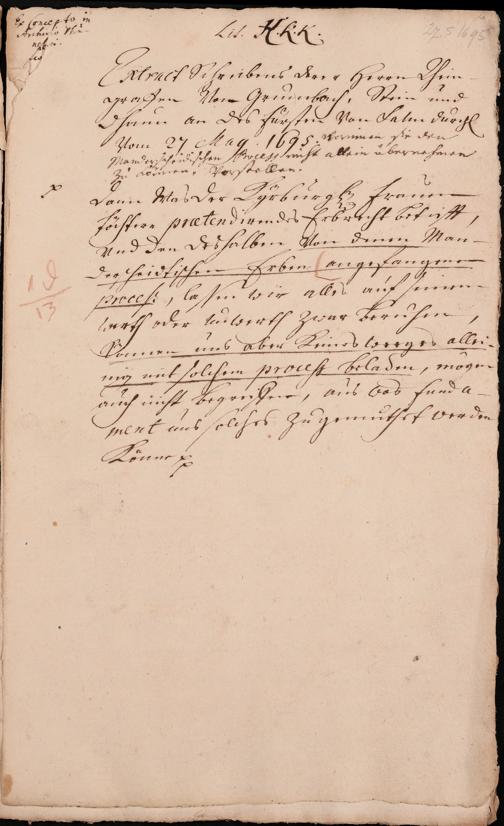 Ex Concepto in
Archivo Rhe-
Lit. H.K.K.
27.5.1695
Extract Schreibens derer Herren Rhein-
graffen von Grumbach, Stein und
Dhaun an des Fürsten von Salm durchl.
vom 27 May 1695, worinnen sie den
Manderscheidischen Process nicht allein übernehmen
zu können, vorstellen.
p
Dann was der Kÿrburgl. Frauen
töchtere prætendirendes Erbrecht betrifft,
und den deshalben von denen Man-
derscheidischen Erben angefangenen
process, lassen wir alles auf seinen
werth oder unwerth zwar beruhen,
können uns aber keines weeges allei-
nig mit solchem process beladen, mögen
auch nicht begreiffen, aus was funda-
ment uns solches zugemuthet werden
könne p
19
13